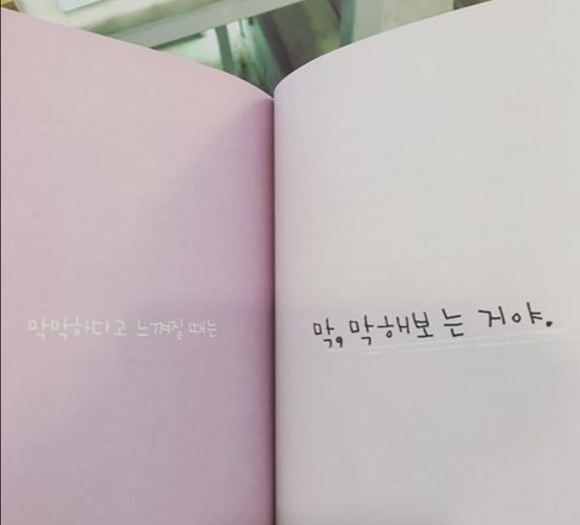 막막하다고 느껴질 때는
막, 막해보는 거야.